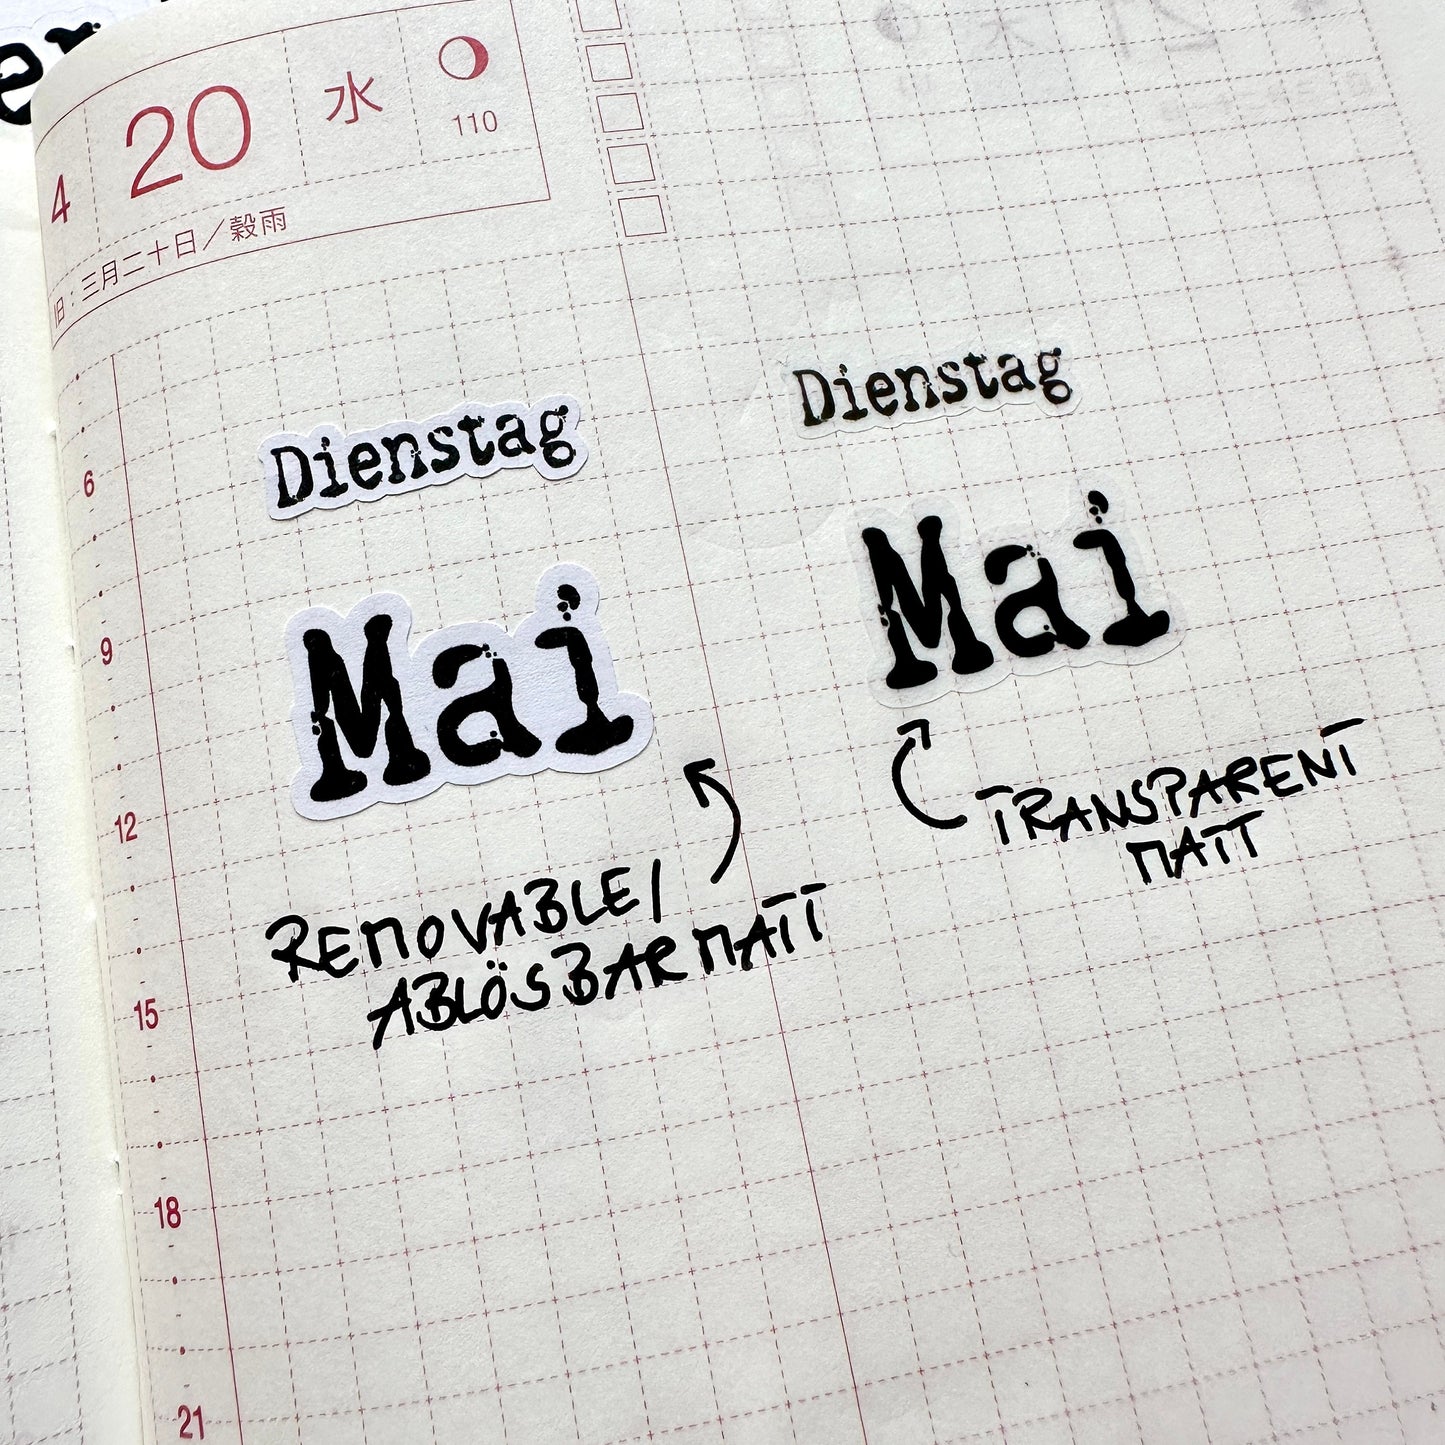 er
4 20 水 110
旧：三月二十日／穀雨
6
9
12
15
18
21
Dienstag
Mai
REMOVABLE/
ABLÖSBAR MATT
Dienstag
Mai
TRANSPARENT
MATT